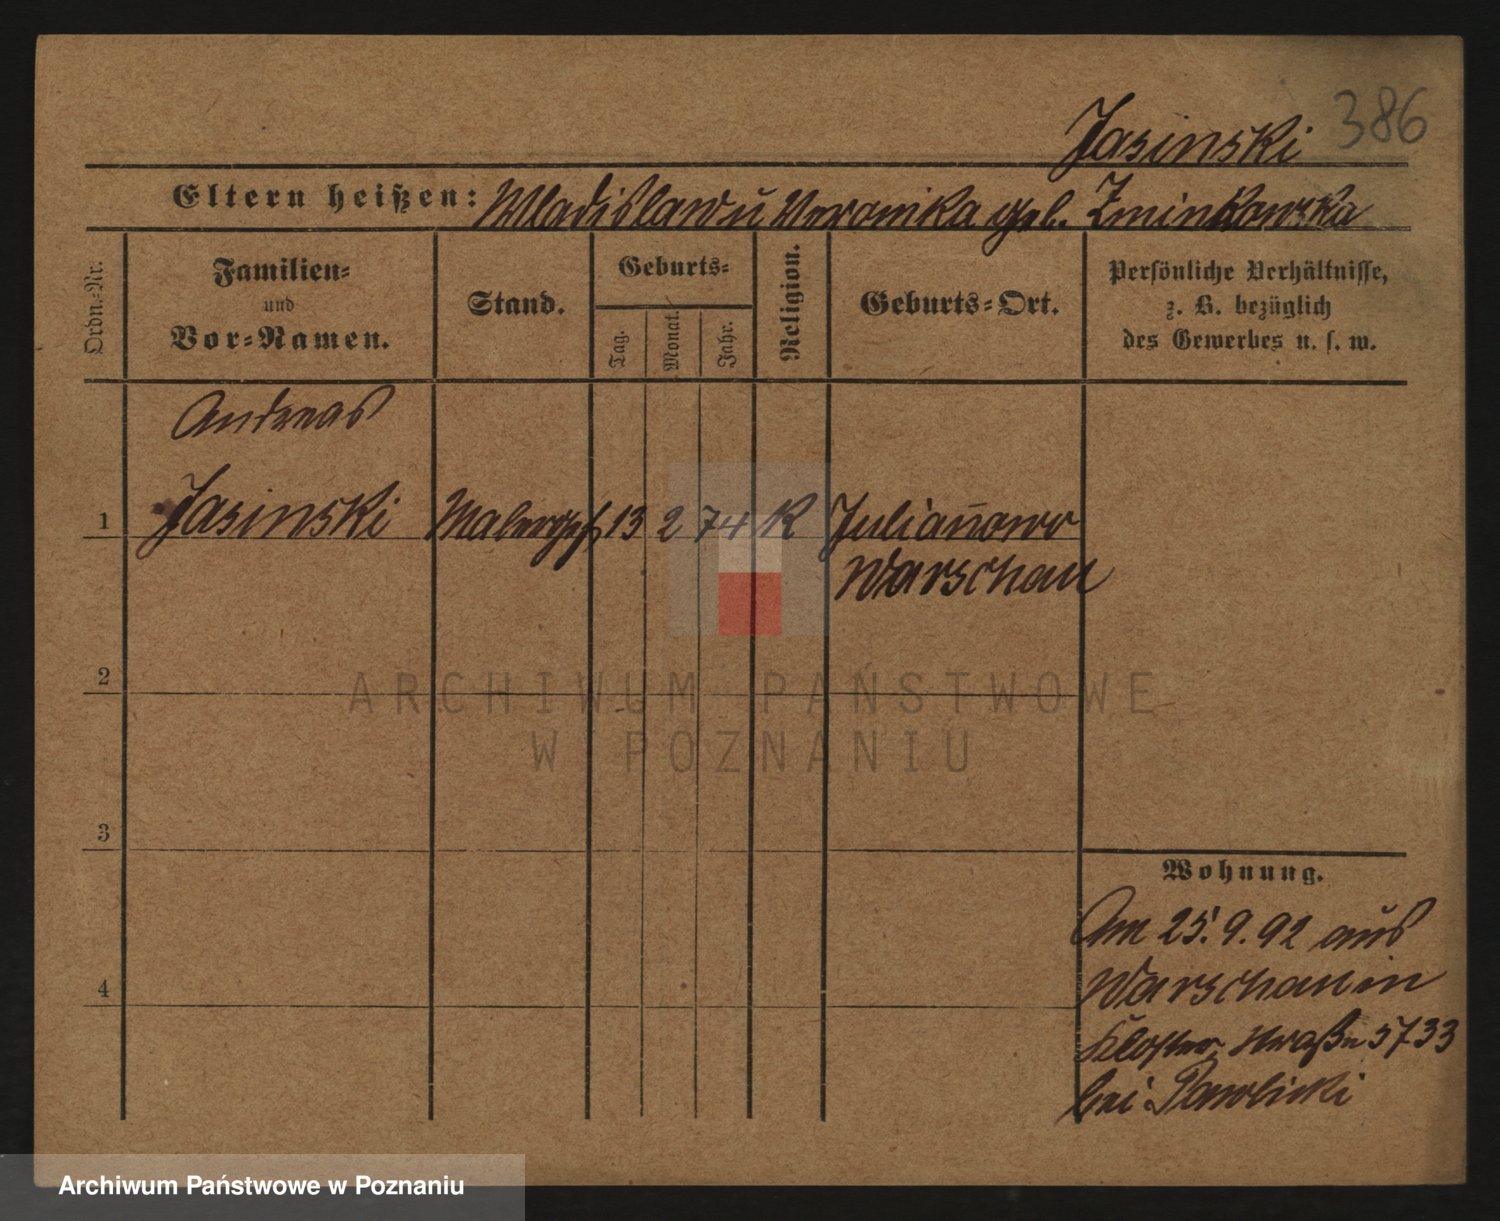 Jasinski 386
Eltern heißen: Wladislaw u Veronika geb. Zminkowska
Ordn.-Nr.
Familien-
und
Vor-Namen.
Stand.
Geburts-
Tag.
Monat.
Jahr.
Religion.
Geburts-Ort.
Persönliche Verhältnisse,
z. B. bezüglich
des Gewerbes u. s. w.
Andreas
1 Jasinski Malergeh 13 2 74 K Julianowo
Warschau
2
ARCHIWUM PAŃSTWOWE
W POZNANIU
3
Wohnung.
Am 25.9.92 aus
Warschau in
4
Kloster straße 5733
bei Pawlicki
Archiwum Państwowe w Poznaniu